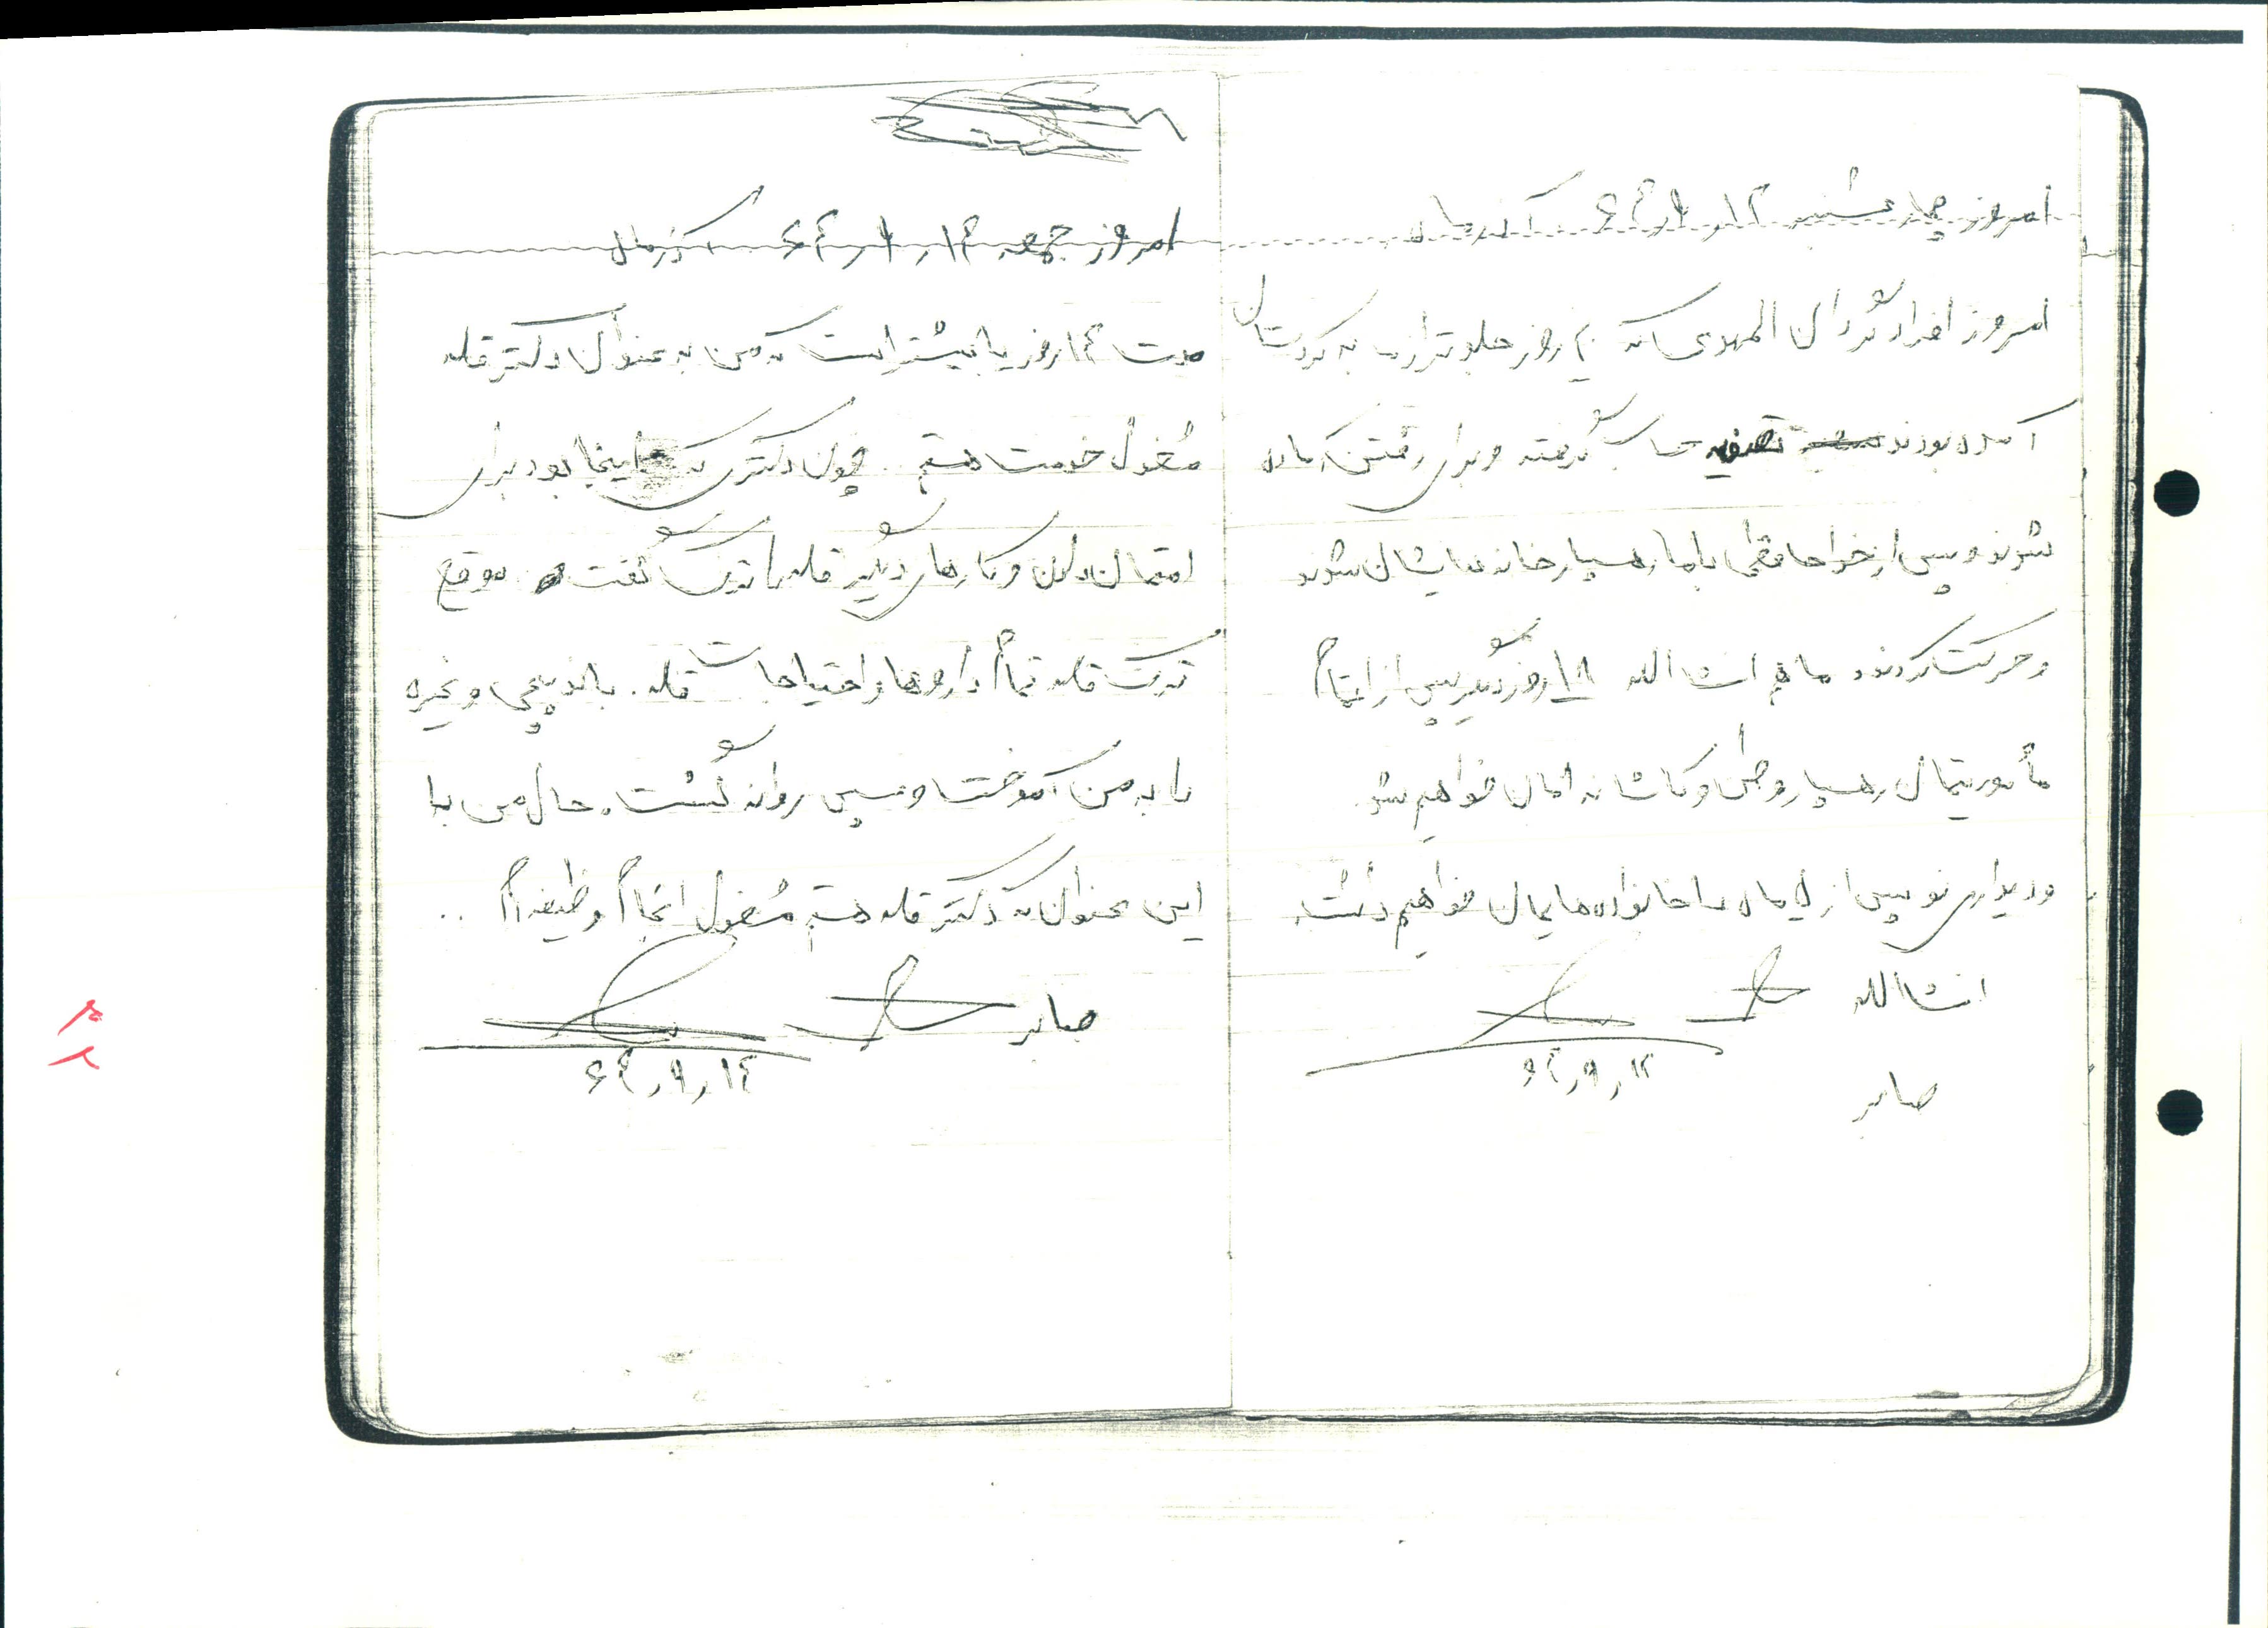 امروز چهارشنبه ۶۴٫۹٫۱۲
امروز افراد گردان المهدی که ۲۰ روز جلوتر از ما به کردستان
آمده بودند تصفیه حساب گرفته و برای رفتن آماده
شوند و پس از خداحافظی با ما رهسپار خانه هایشان شوند
و حرکت کردند. ما هم انشاالله ۱۸ روز دیگر پس از اتمام
مأموریتمان رهسپار وطن و کاشانه امان خواهیم شد
و دیداری نو پس از ما با خانواده هایمان خواهیم داشت.
انشاالله
۶۴٫۹٫۱۲
صابر
امروز جمعه ۶۴٫۹٫۱۴
مدت ۱۴ روز یا بیشتر است که من به عنوان دکتر قله
مشغول خدمت هستم. چون دکتری که اینجا بود برای
امتحان دادن و کارهای دیگر قله را ترک گفت موقع
ترک قله تمام داروها و احتیاجات قله. باندپیچی و غیره
را به من آموخت و سپس روانه گشت. حال من با
این عنوان که دکتر قله هستم مشغول انجام وظیفه ام ..
صابر
۶۴٫۹٫۱۴